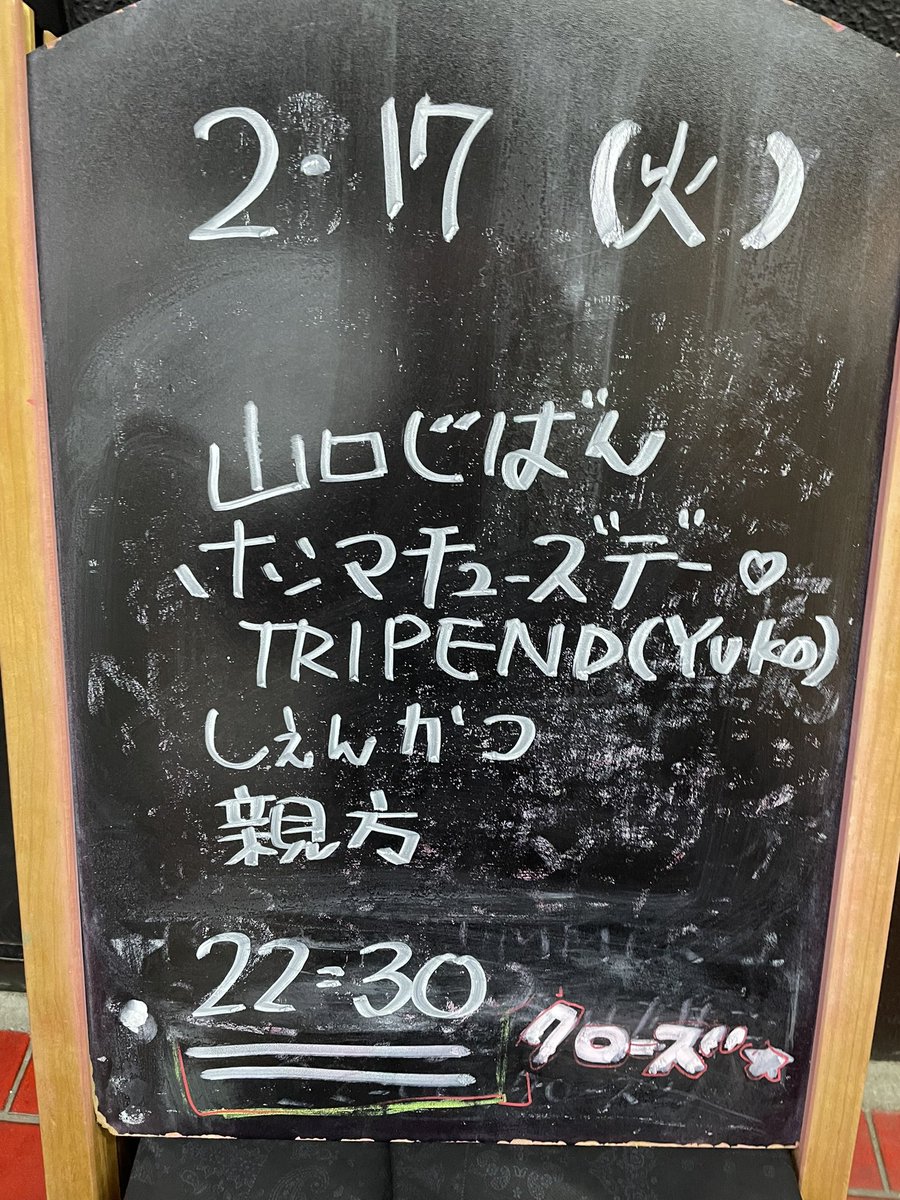 2・17 (火)
山口じばん
ホンマチューズデー♡
TRIPEND(Yuko)
しぇんかつ
親方
22:30
クローズ☆